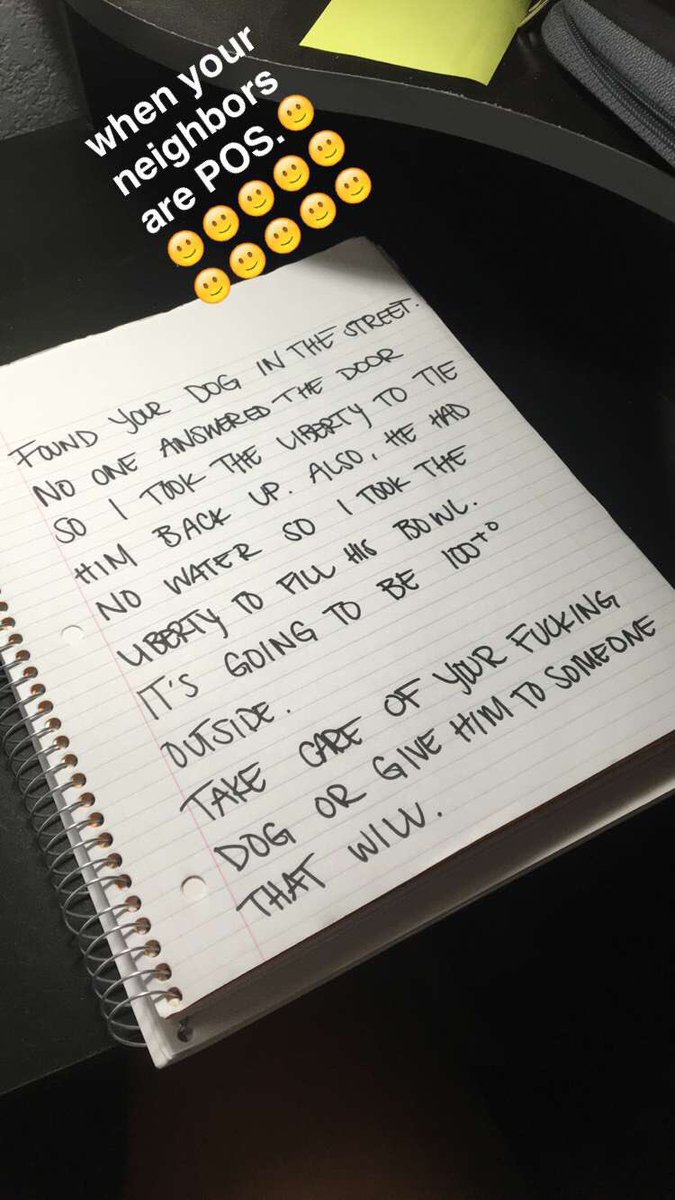 when your
neighbors
are POS.🙂
🙂🙂🙂🙂🙂
🙂🙂🙂🙂🙂
FOUND YOUR DOG IN THE STREET.
NO ONE ANSWERED THE DOOR
SO I TOOK THE LIBERTY TO TIE
HIM BACK UP. ALSO, HE HAD
NO WATER SO I TOOK THE
LIBERTY TO FILL HIS BOWL.
IT'S GOING TO BE 100+°
OUTSIDE.
TAKE CARE OF YOUR FUCKING
DOG OR GIVE HIM TO SOMEONE
THAT WILL.